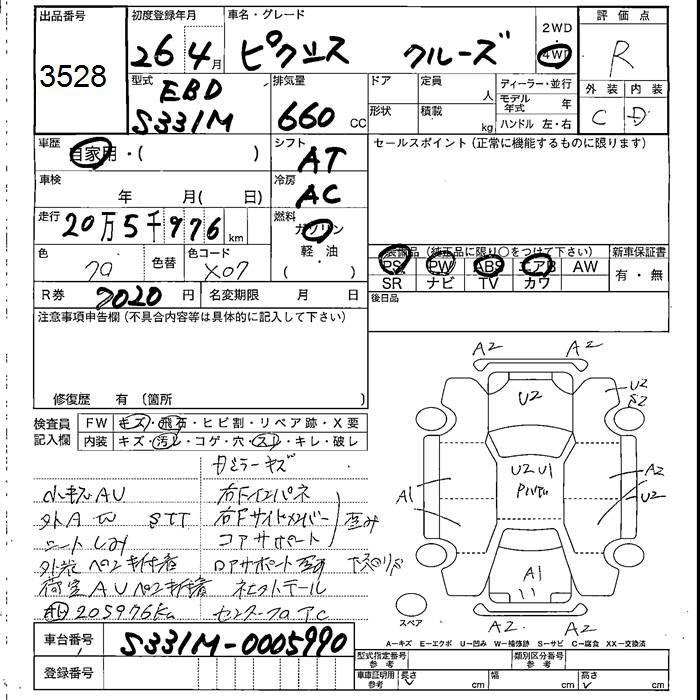 出品番号
3528
初度登録年月
26 4月
車名・グレード
ピクシス クルーズ
2WD
4WD
評価点
R
外装 内装
C D
型式
EBD
S331M
排気量
660 CC
ドア
形状
定員
人
積載
kg
ディーラー・並行
モデル年式 年
ハンドル 左・右
車歴
自家用・( )
シフト
AT
セールスポイント(正常に機能するものに限ります)
車検
年 月( 日)
冷房
AC
走行
20万5千976 km
燃料
ガソリン
・
軽・油
( )
色
色替
色コード
X07
装備品(純正品に限り○をつけて下さい)
PS PW ABS エアB AW
SR ナビ TV カワ
新車保証書
有・無
R券
7020円
名変期限 月 日
後日品
注意事項申告欄(不具合内容等は具体的に記入して下さい)
修復歴 有 (箇所 )
検査員記入欄
FW キズ・飛石・ヒビ割・リペア跡・X要
内装 キズ・汚レ・コゲ・穴・スレ・キレ・破レ
小キズAU
右Fインパネ
外A W STT
右Fサイドメンバー
歪み
シートしみ
コアサポート
荷室AUペンキ付着
205976km
A2 A2
U2
U2
S2
U2 U1
A1
A2
U2
A1
A2 A2
スペア
A-キズ E-エクボ U-凹み W-補修跡 S-サビ C-腐食 XX-交換済
車台番号
S331M-0005990
登録番号
型式指定番号 参考
類別区分番号 参考
車庫証明用 参考
長さ cm
幅 cm
高さ cm